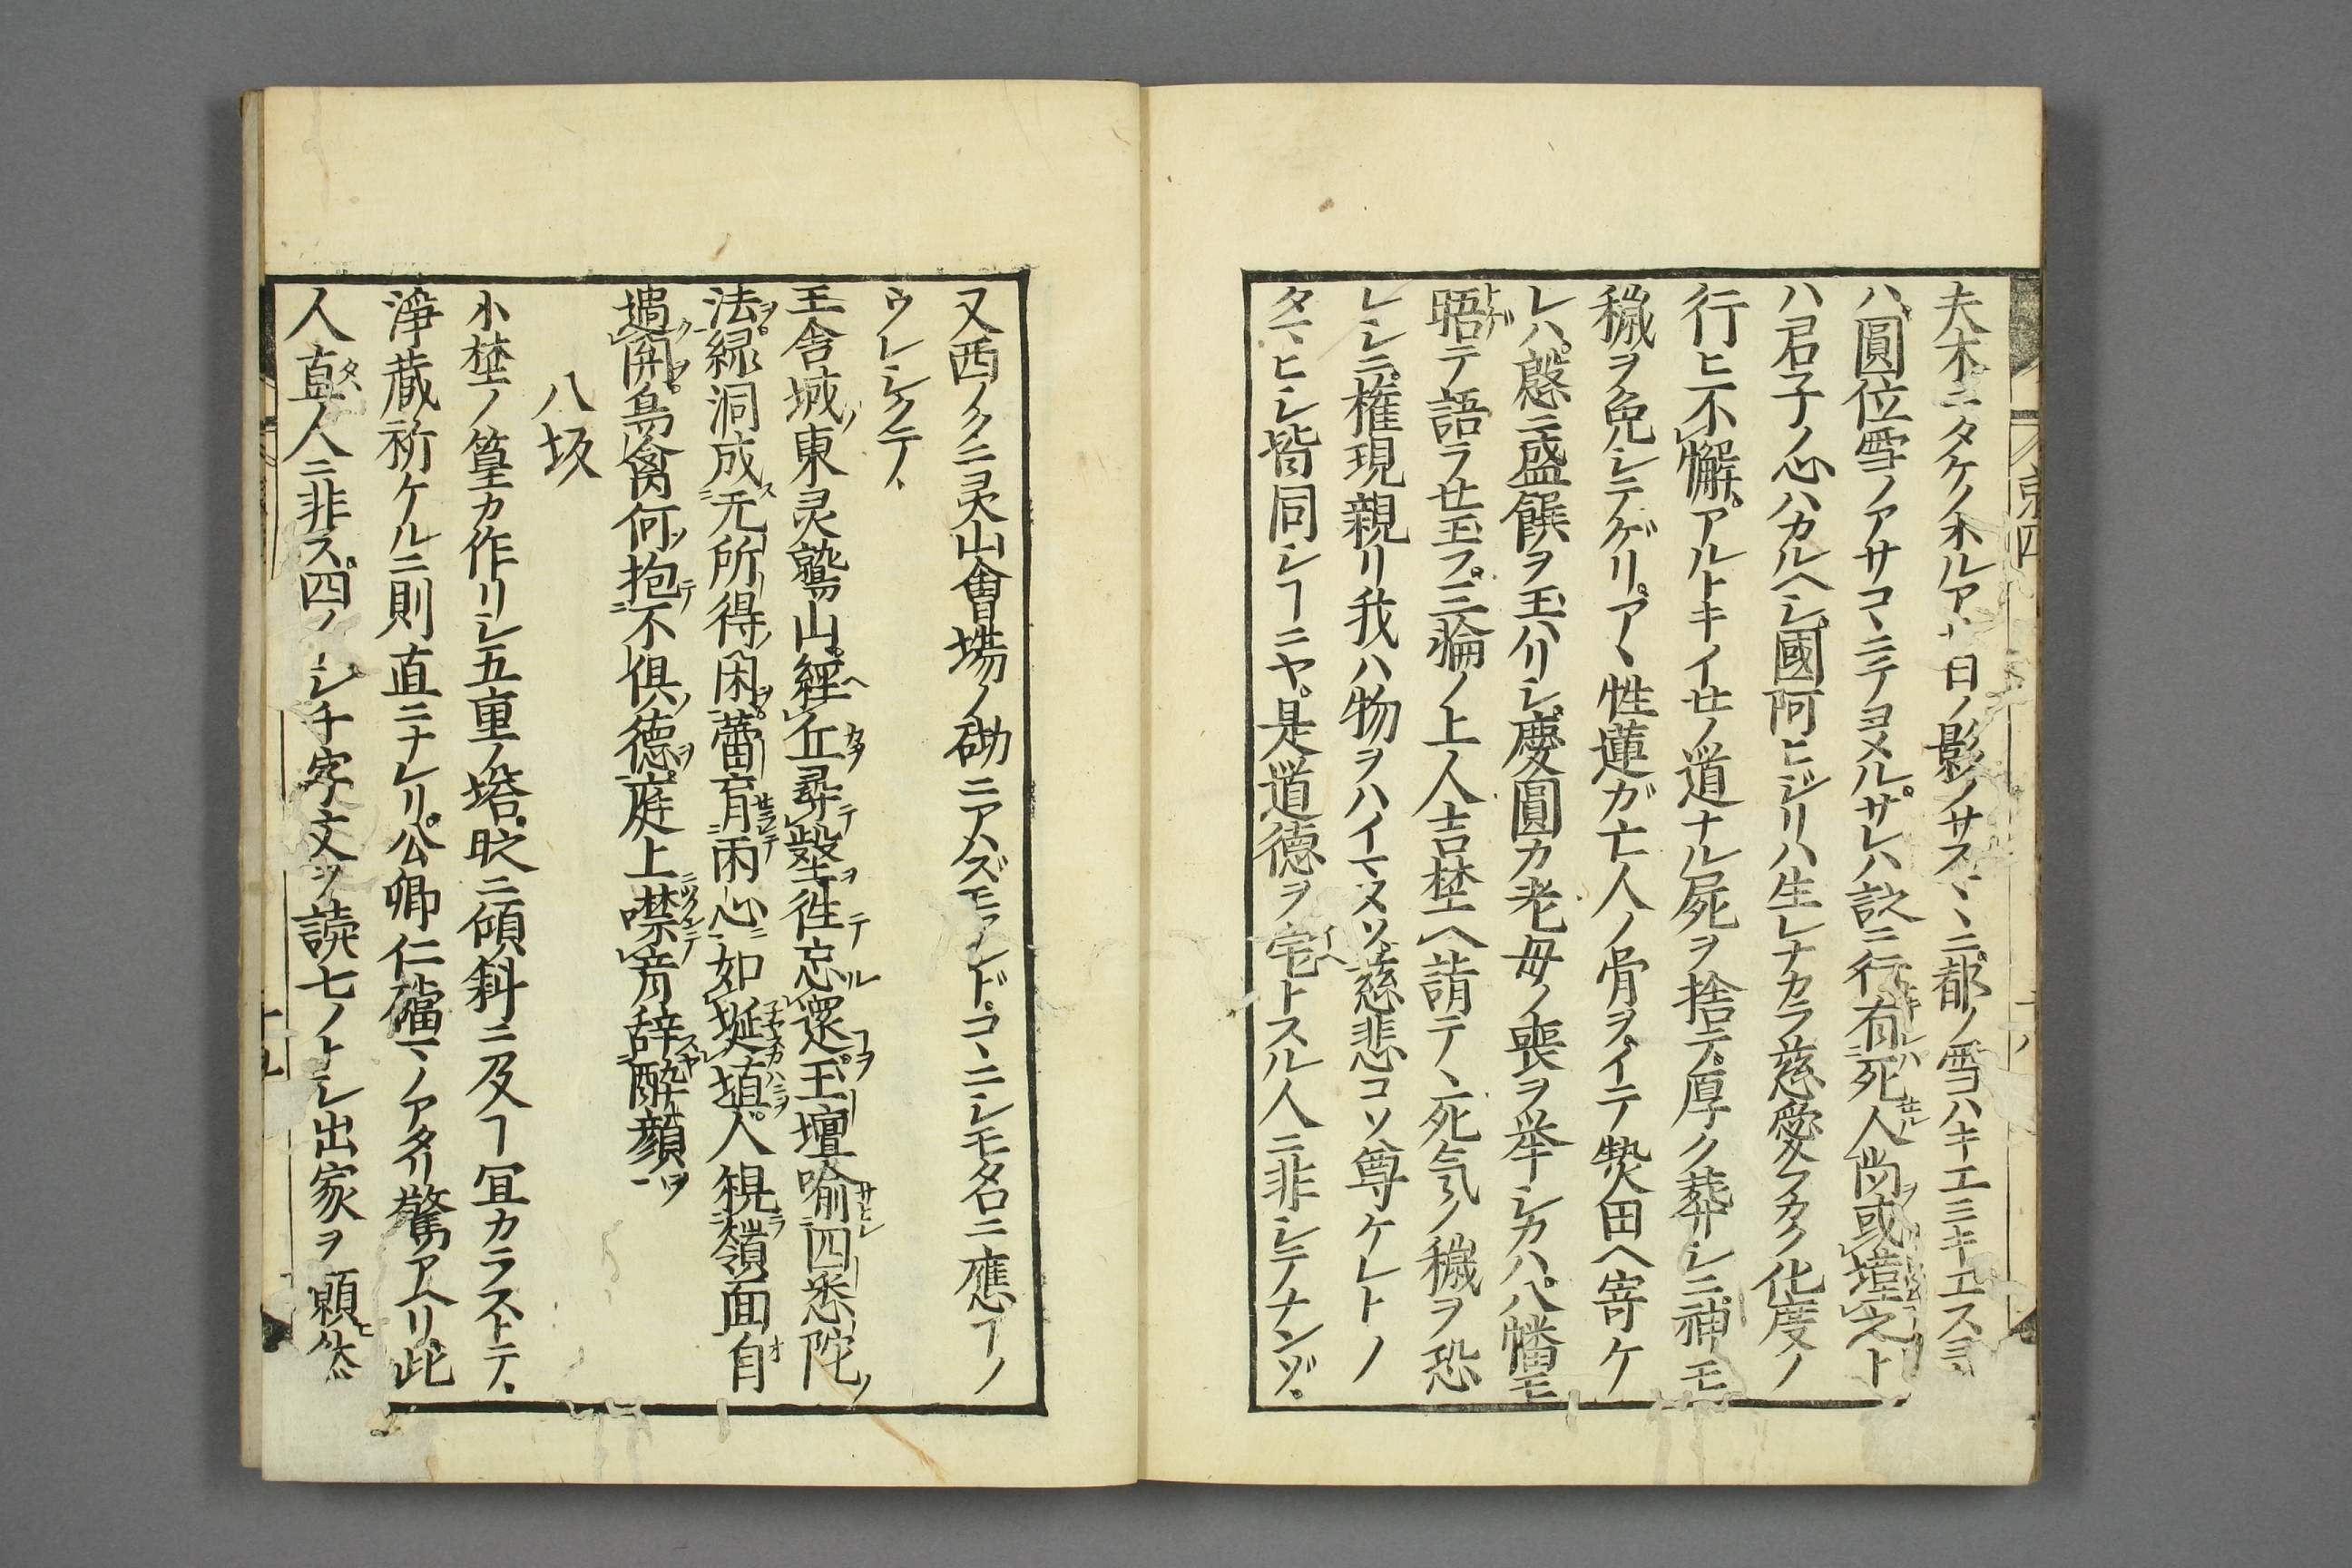 夫木ニタケノホルア 日ノ影ノサスヽニ都ノ雪ハキエミキエスミ
ハ圓位雪ノアサコヽニテヨメルサレハ詩ニ行有死人尚或墐之ト
ハ君子ノ心ハカルヘシ國阿ヒジリハ生レナカラ慈愛フカク化度ノ
行ヒ不懈アルトキイセノ道ナル屍ヲ捨テ厚ク葬サレシニ神モ
穢ヲ免シテゲリアヽ性蓮ガ亡人ノ骨ヲイテ熱田ヘ寄ケ
レハ慇ニ盛饌ヲ玉ハリシ慶圓カ老母ノ喪ヲ挙シカハ八幡モ
晤テ語ラセ玉フ三輪ノ上人吉埜ヘ詣テヽ死気ノ穢ヲ恐
レシニ權現親リ我ハ物ヲハイマヌソ慈悲コソ尊ケレトノ
タマヒシ皆同シヿニヤ是道德ヲ宅トスル人ニ非シテナンゾ
又西ノクニ灵山會場ノ砌ニアハズモアレドコヽニシモ名ニ應ヿノ
ウレシクテ
王舍城東灵鷲山經丘尋壑徃忘還玉壇喩四悉陀
法緑洞成无所得閑蕾育雨心如埏埴人覩嶺面自
過開鳥禽何抱不倶德庭上噤音辞醉顔
八坂
小埜ノ篁カ作リシ五重ノ塔欹ニ傾斜ニ及ヿ冝カラストテ
淨蔵祈ケルニ則直ニナレリ公卿仁礀マノアタリ驚アヘリ此
人直人ニ非ス四ノ シ千字文ヲ読七ノトシ出家ヲ願